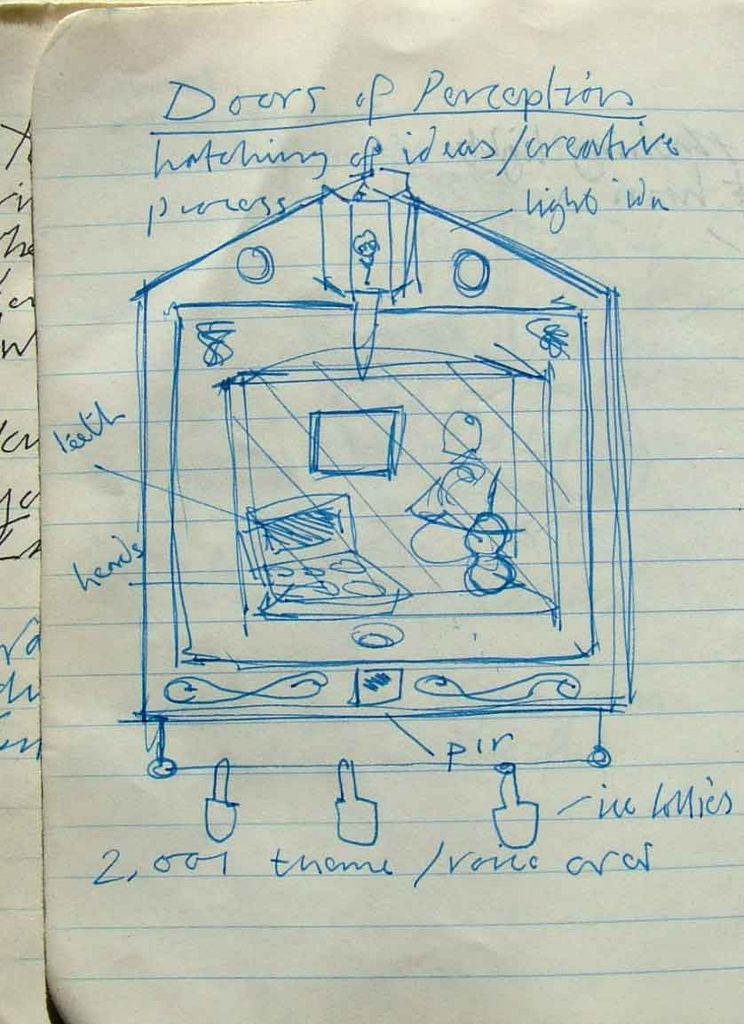 Doors of Perception
hatching of ideas/creative
process
light
teeth
heads
pir
ice lollies
2,001 theme/voice over